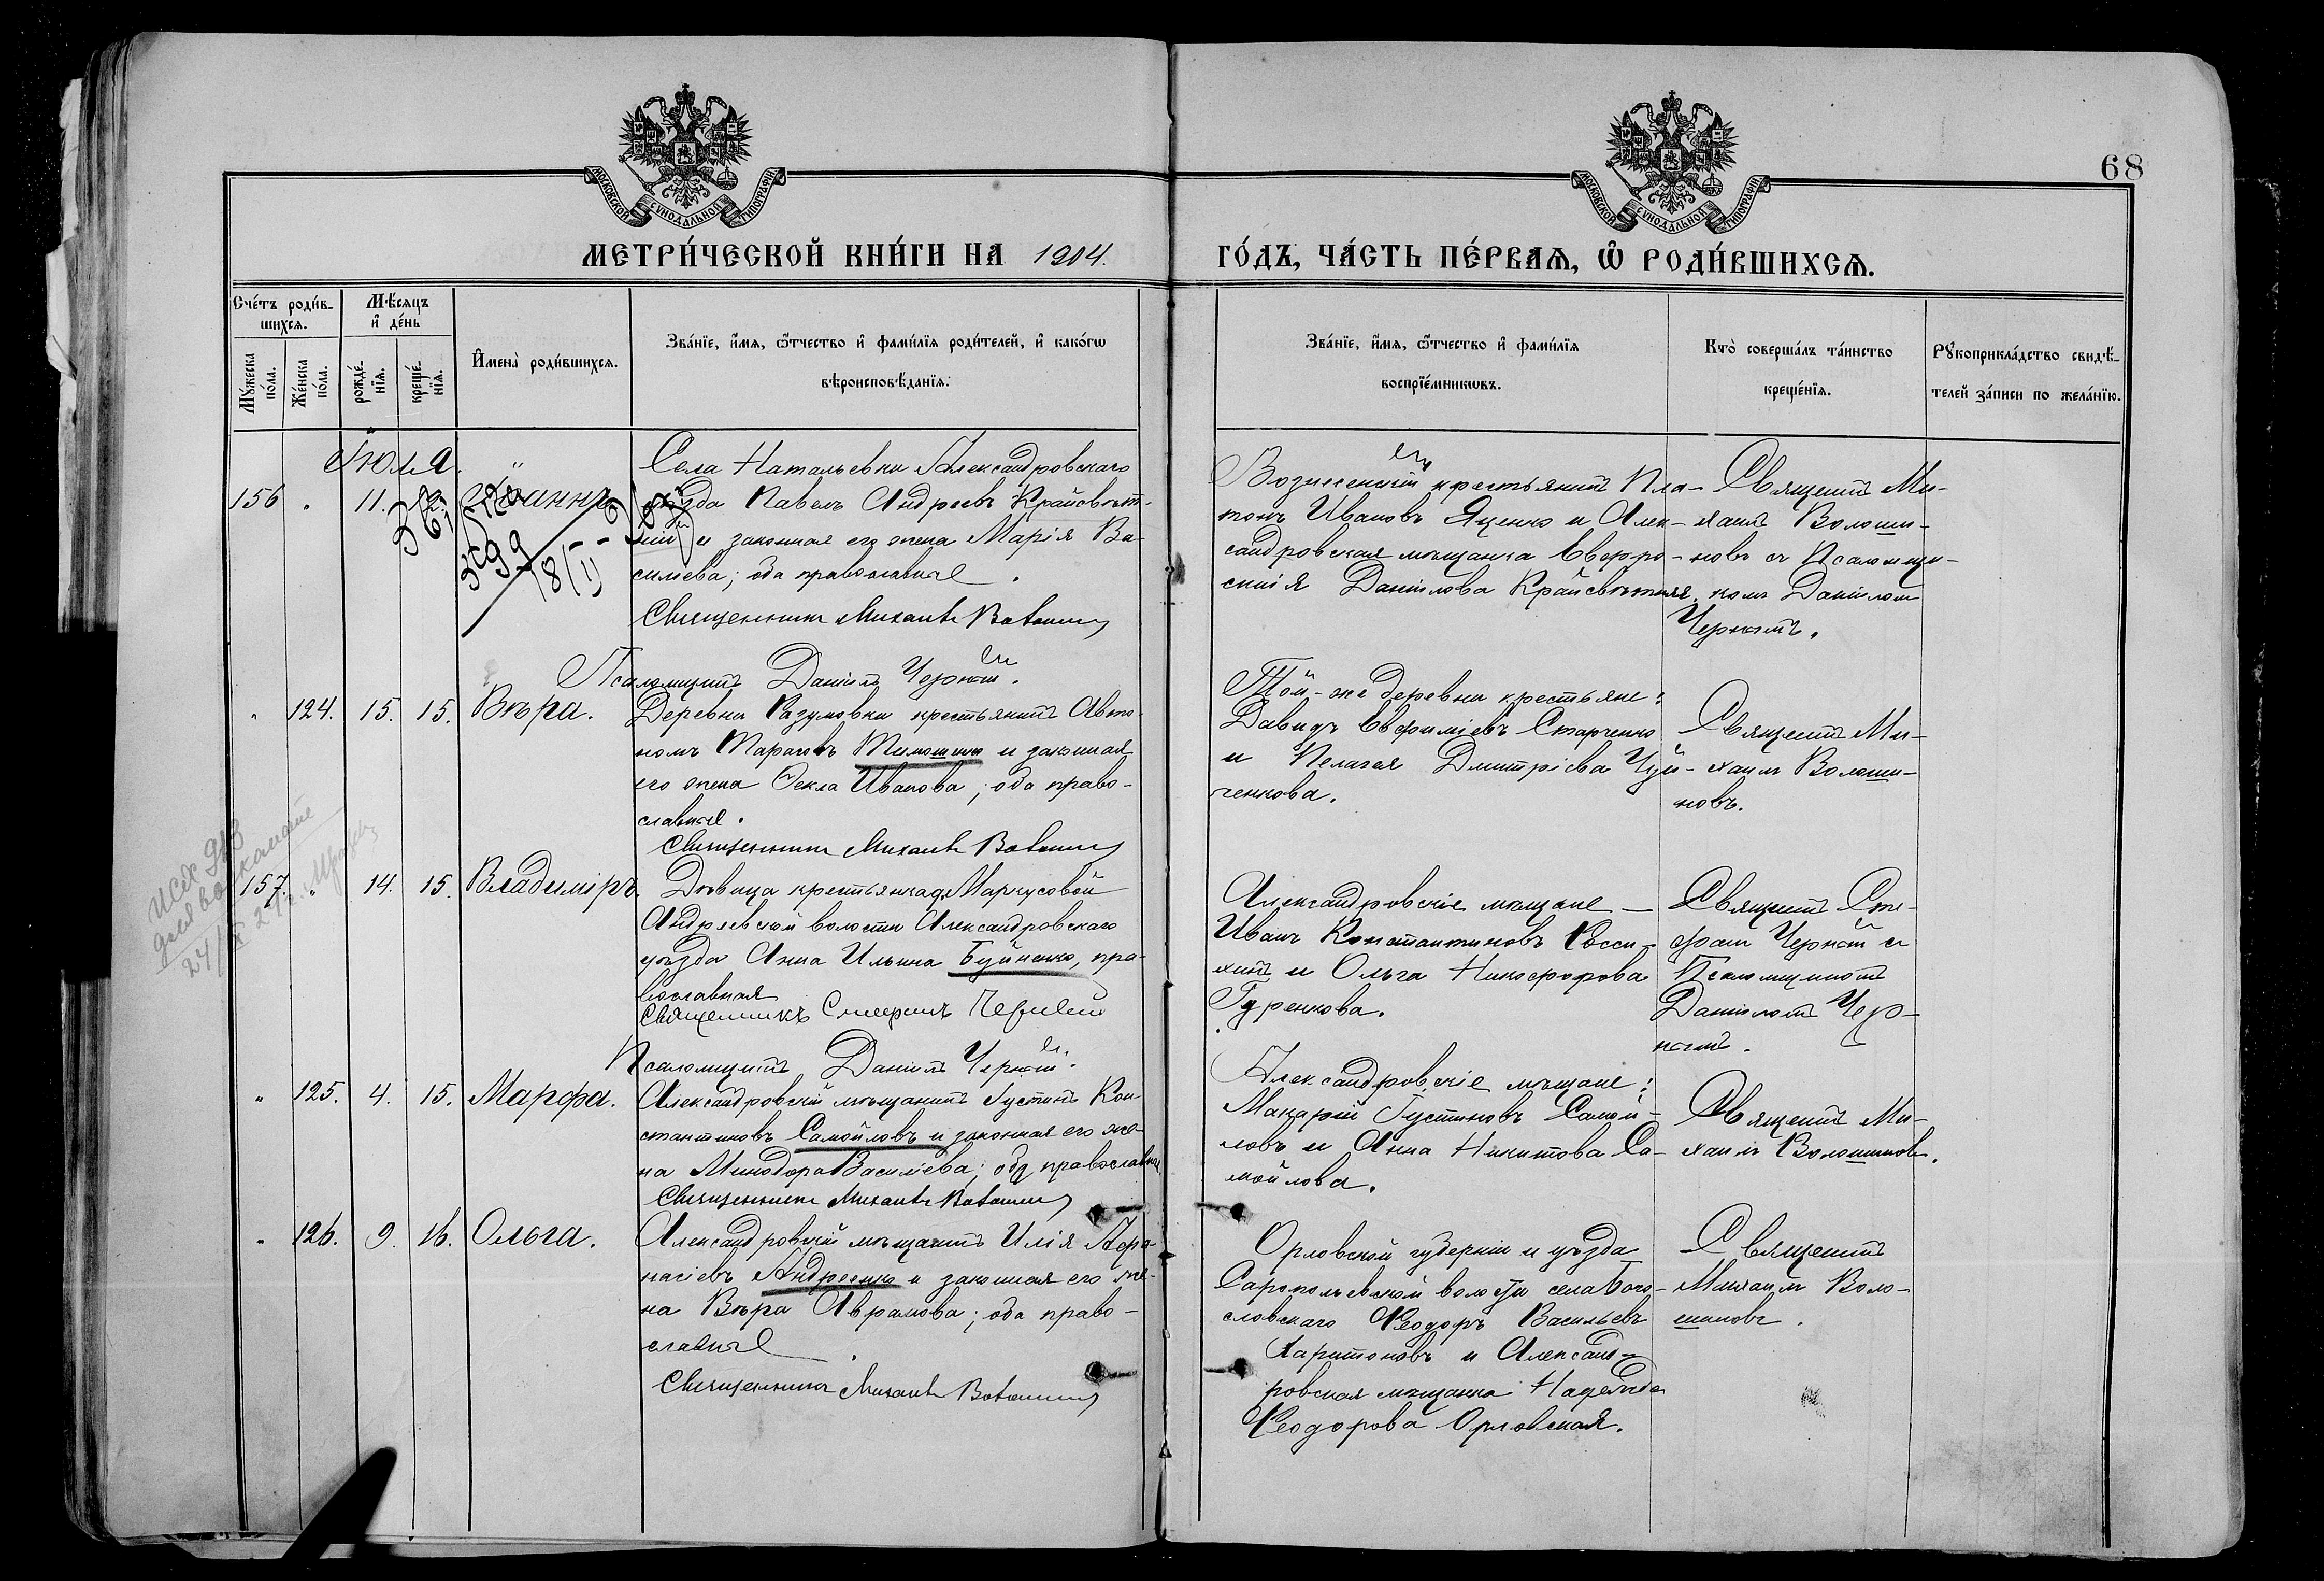 68
МОСКОВСКОЙ СУНОДАЛЬНОЙ ТИПОГРАФІИ
МОСКОВСКОЙ СУНОДАЛЬНОЙ ТИПОГРАФІИ
МЕТРИ́ЧЕСКОЙ КНИ́ГИ НА 1904.
ГО́ДЪ, ЧА́СТЬ ПЕ́РВАѦ, Ѡ҆ РОДИ́ВШИХСѦ.
Сче́тъ роди́в-
шихсѧ.
Мѣ́сѧцъ
и҆ де́нь
Мꙋ́жеска
по́ла.
Же́нска
по́ла.
рожде́-
нїѧ.
креще́-
нїѧ.
И҆мена̀ роди́вшихсѧ.
Зва́нїе, и҆́мѧ, ѻ҆́тчество и҆ фами́лїѧ роди́телей, и҆ како́гѡ
вѣроисповѣ́данїѧ.
Зва́нїе, и҆́мѧ, ѻ҆́тчество и҆ фами́лїѧ
воспрїе́мникѡвъ.
Кто̀ соверша́лъ та́инство
креще́нїѧ.
Рꙋкоприкла́дство свидѣ́-
телей за́писи по жела́нїю.
Іюля.
156 " 11. 12. Іоаннъ
Села Натальевки Александровскаго
уѣзда Павелъ Андреевъ Крайсвѣт-
ній и законная его жена Марія Ва-
силіева; оба православные.
Священникъ Михаилъ Волошинъ
Псаломщикъ Даніилъ Черный.
Вознесенскій крестьянинъ Пла-
тонъ Ивановъ Яценко и Алек-
сандровская мѣщанка Евфро-
синія Даніилова Крайсвѣтняя.
Священникъ Ми-
хаилъ Волоши-
новъ съ Псаломщи-
комъ Даніиломъ
Чернымъ.
" 124. 15. 15. Вѣра.
Деревни Разумовки крестьянинъ Авто-
номъ Тарасовъ Тимошенко и законная
его жена Ѳекла Иванова; оба право-
славные.
Священникъ Михаилъ Волошинъ
Той-же деревни крестьяне:
Давидъ Евфиміевъ Старченко
и Пелагея Дмитріева Чуй-
ченкова.
Священникъ Ми-
хаилъ Волоши-
новъ.
157. " 14. 15. Владиміръ.
Дѣвица крестьянка д. Маркусовой
Андреевской волости Александровскаго
уѣзда Анна Ильина Буйненко, пра-
вославная
Священникъ Стефанъ Черный
Псаломщикъ Даніилъ Черный.
Александровскіе мѣщане —
Иванъ Константиновъ Росси-
хинъ и Ольга Никифорова
Гуренкова.
Священникъ Сте-
фанъ Черный съ
Псаломщикомъ
Даніиломъ Чер-
нымъ.
" 125. 4. 15. Марфа.
Александровскій мѣщанинъ Іустинъ Кон-
стантиновъ Самойловъ и законная его же-
на Минодора Василіева; оба православные
Священникъ Михаилъ Волошинъ
Александровскіе мѣщане:
Макарій Іустиновъ Самой-
ловъ и Анна Никитова Са-
мойлова.
Священникъ Ми-
хаилъ Волошиновъ.
" 126. 9. 16. Ольга.
Александровскій мѣщанинъ Илія Аѳа-
насіевъ Андреенко и законная его же-
на Вѣра Аврамова; оба право-
славные.
Священникъ Михаилъ Волошинъ
Орловской губерніи и уѣзда
Саропольевской волости села Бого-
словскаго Ѳеодоръ Васильевъ
Харитоновъ и Александ-
ровская мѣщанка Надежда
Ѳеодорова Орловская.
Священникъ
Михаилъ Воло-
шиновъ.